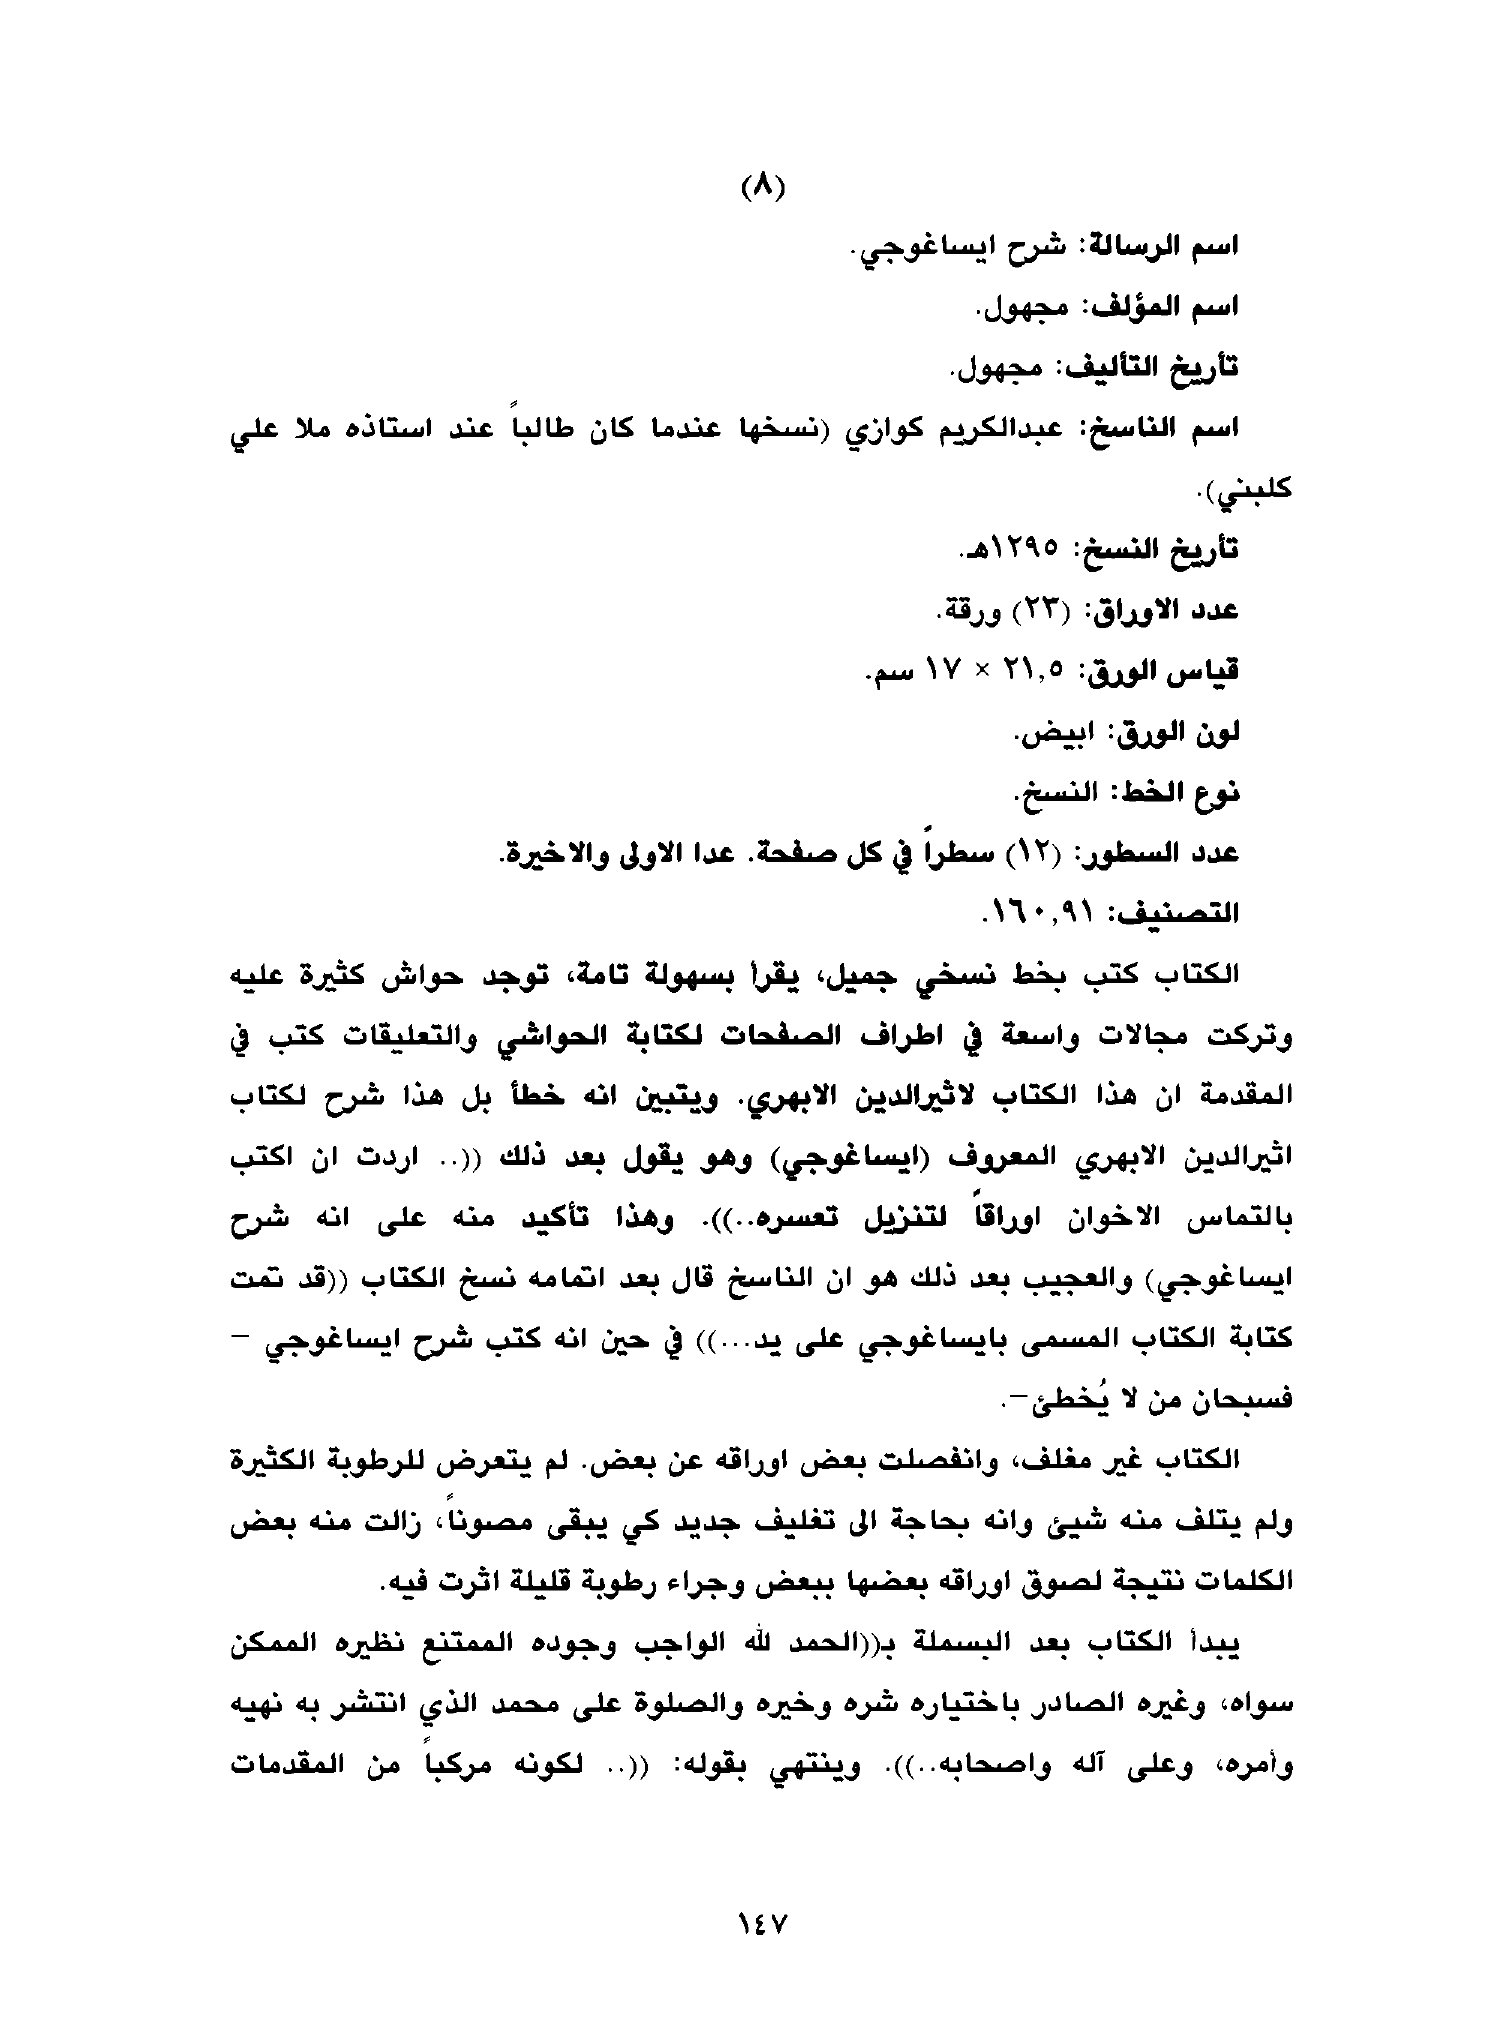 (٨)
اسم الرسالة: شرح ايساغوجي.
اسم المؤلف: مجهول.
تأريخ التأليف: مجهول.
اسم الناسخ: عبدالكريم كوازي (نسخها عندما كان طالباً عند استاذه ملا علي
كلبني).
تأريخ النسخ: ١٢٩٥هـ.
عدد الاوراق: (٢٣) ورقة.
قياس الورق: ٢١,٥ × ١٧ سم.
لون الورق: ابيض.
نوع الخط: النسخ.
عدد السطور: (١٢) سطراً في كل صفحة. عدا الاولى والاخيرة.
التصنيف: ١٦٠,٩١.
الكتاب كتب بخط نسخي جميل، يقرأ بسهولة تامة، توجد حواش كثيرة عليه
وتركت مجالات واسعة في اطراف الصفحات لكتابة الحواشي والتعليقات كتب في
المقدمة ان هذا الكتاب لاثيرالدين الابهري. ويتبين انه خطأ بل هذا شرح لكتاب
اثيرالدين الابهري المعروف (ايساغوجي) وهو يقول بعد ذلك ((.. اردت ان اكتب
بالتماس الاخوان اوراقاً لتنزيل تعسره..)). وهذا تأكيد منه على انه شرح
ايساغوجي) والعجيب بعد ذلك هو ان الناسخ قال بعد اتمامه نسخ الكتاب ((قد تمت
كتابة الكتاب المسمى بايساغوجي على يد...)) في حين انه كتب شرح ايساغوجي –
فسبحان من لا يُخطئ–.
الكتاب غير مغلف، وانفصلت بعض اوراقه عن بعض. لم يتعرض للرطوبة الكثيرة
ولم يتلف منه شيئ وانه بحاجة الى تغليف جديد كي يبقى مصوناً، زالت منه بعض
الكلمات نتيجة لصوق اوراقه بعضها ببعض وجراء رطوبة قليلة اثرت فيه.
يبدأ الكتاب بعد البسملة بـ((الحمد لله الواجب وجوده الممتنع نظيره الممكن
سواه، وغيره الصادر باختياره شره وخيره والصلوة على محمد الذي انتشر به نهيه
وأمره، وعلى آله واصحابه..)). وينتهي بقوله: ((.. لكونه مركباً من المقدمات
١٤٧